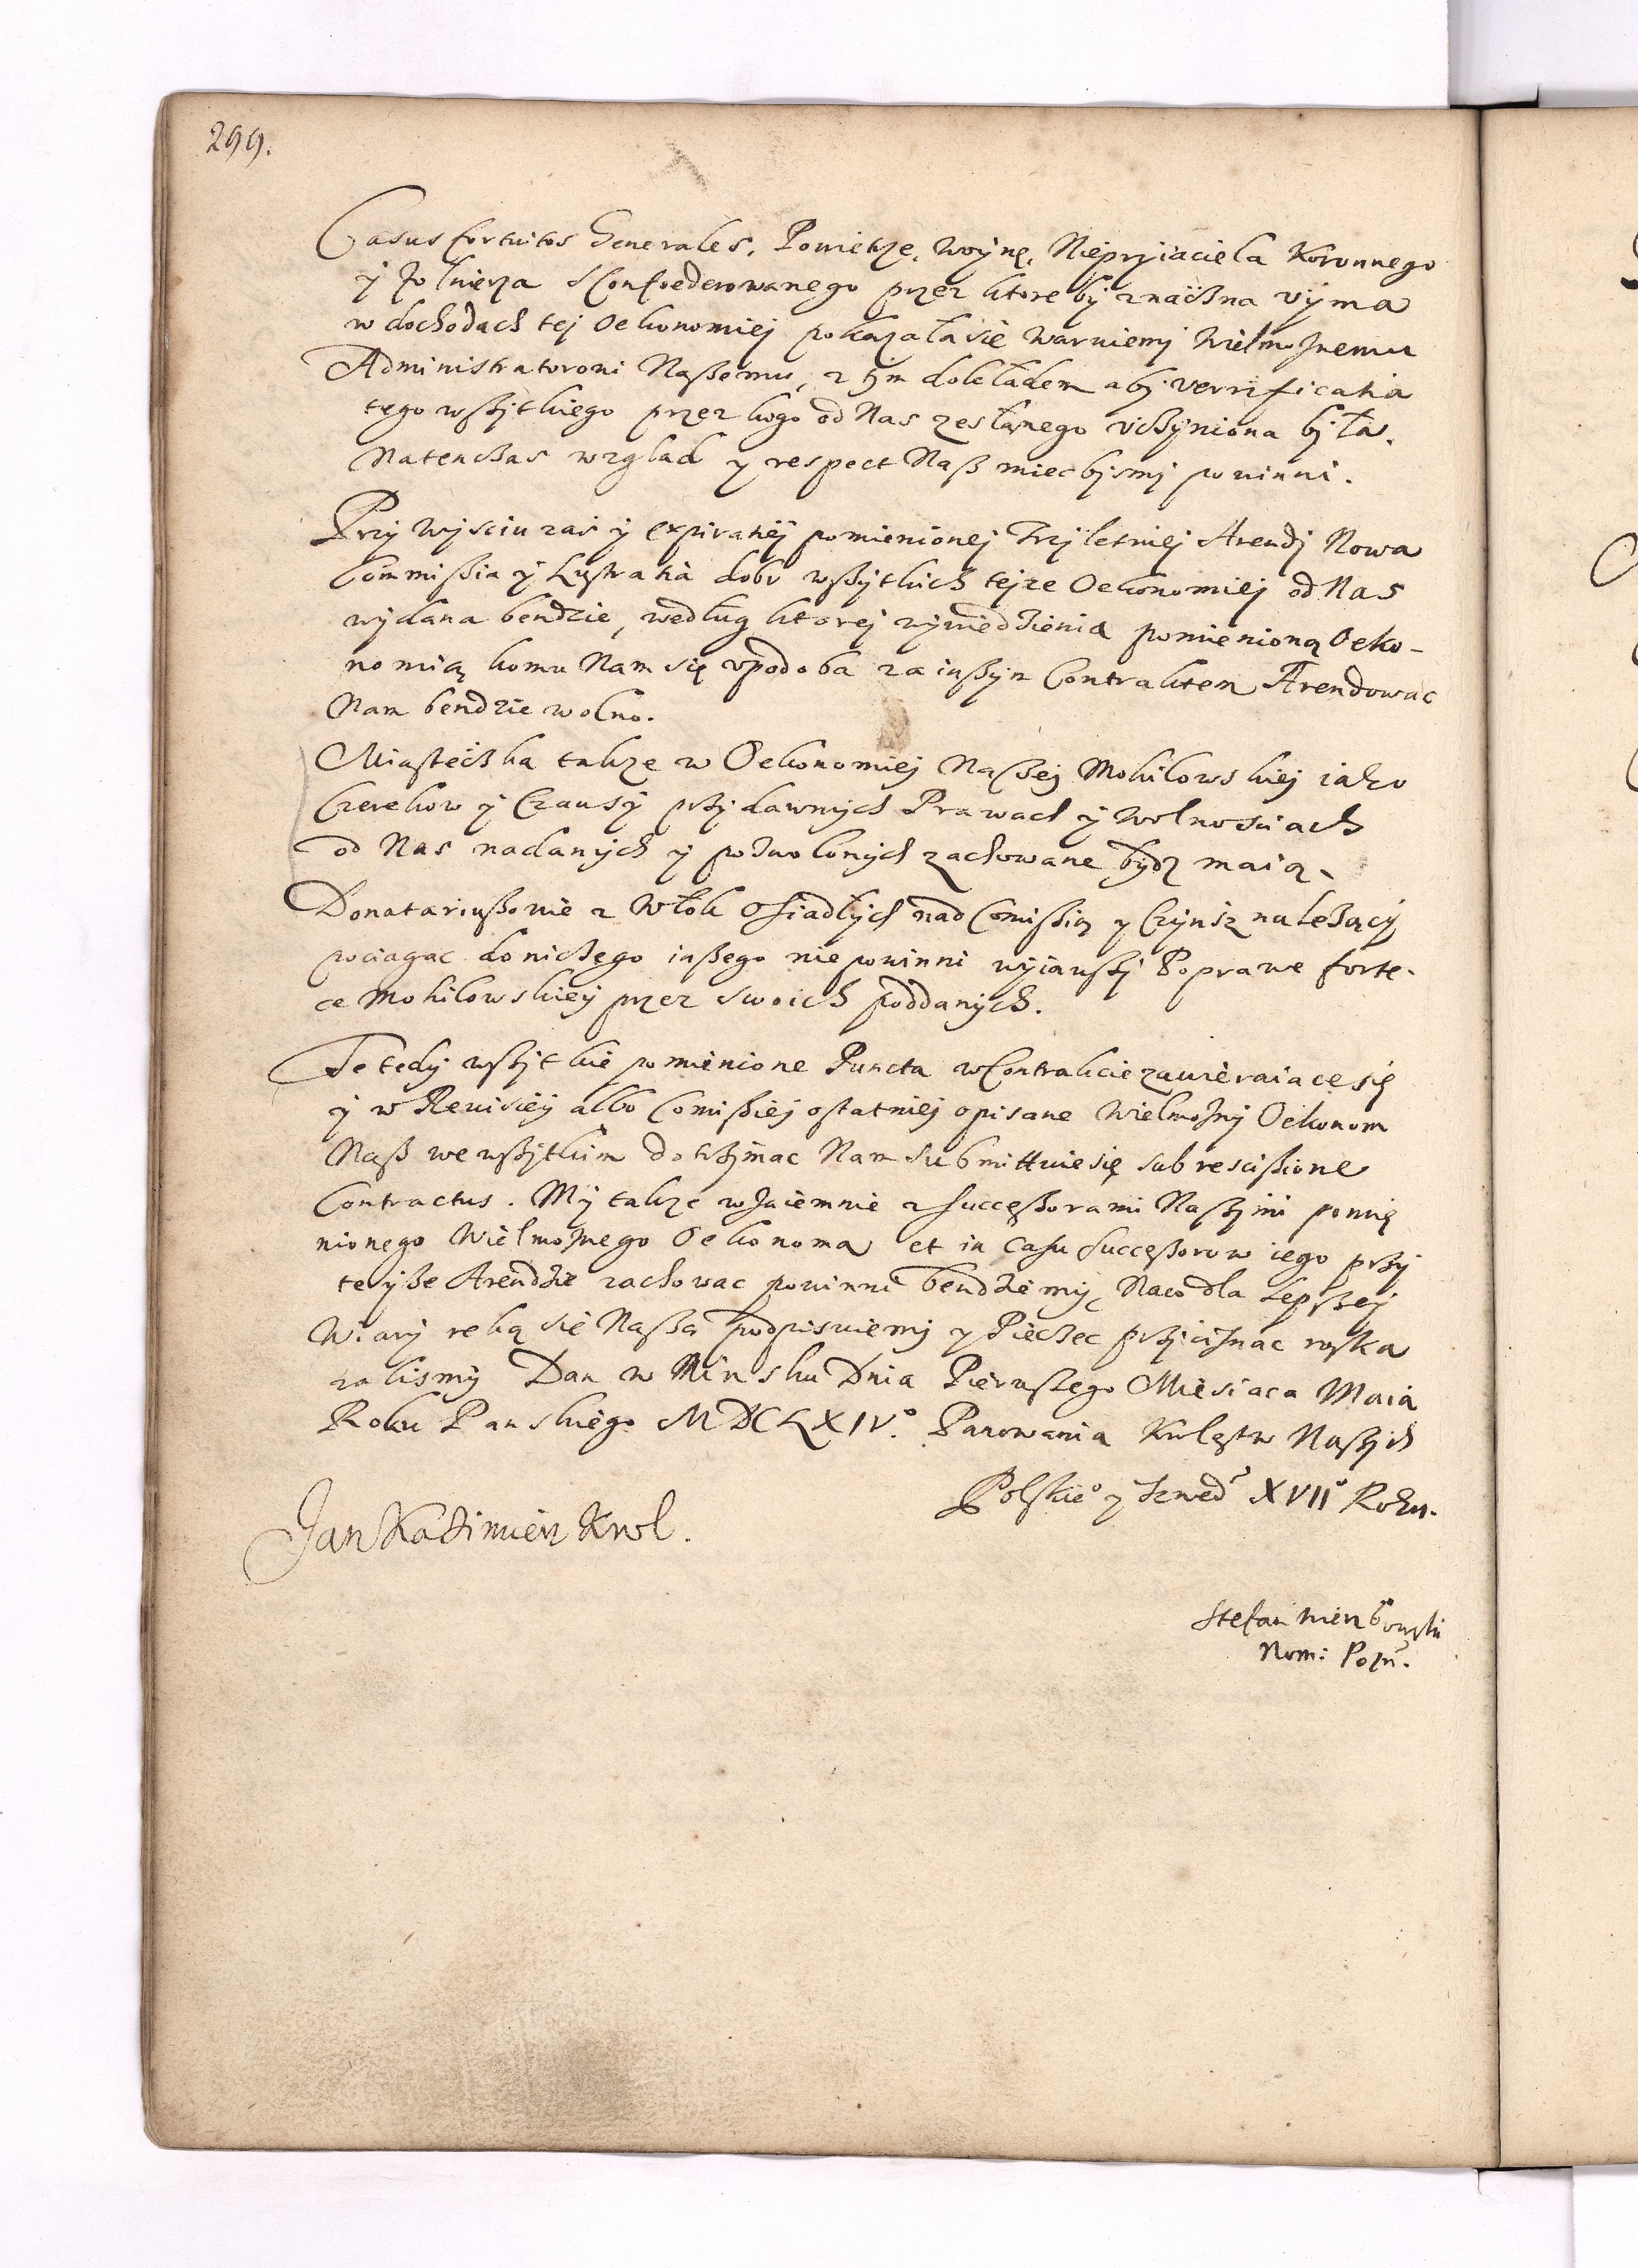 299.
Casus fortuitos Generales, Powietrze, Woÿnę, Nieprzyiaciela Koronnego
ÿ Zołnierza Skonfoederowanego przez ktore bÿ znaczna vÿma
w dochodach teÿ Oekonomieÿ pokazała sie waruiemÿ Wielmożnemu
Administratorowi Naszemu, z tÿm dokładem abÿ verrificatia
tego wszÿtkiego przez kogo od Nas zesłanego vczÿniona bÿła.
Natenczas wzglad ÿ respect Nasz miec bÿsmÿ powinni.
Przÿ Wÿsciu zas ÿ expiratieÿ pomienioneÿ Trzÿletnieÿ Arendÿ Nowa
Commissia ÿ Lustratia dobr wszÿtkich teÿze Oekonomieÿ od Nas
wÿdana bendzie, według ktoreÿ wÿwiedzienia pomienioną Oeko-
nomią komu Nam się vpodoba za inszÿm Contraktem Arendowac
Nam bendzie wolno.
Miasteczka takze w Oekonomieÿ Naszeÿ Mohilowskieÿ iako
Czerekow ÿ Czausÿ przÿ dawnÿch Prawach ÿ Wolnosciach
od Nas nadanÿch ÿ pozwolonÿch zachowane bÿdz maią.
Donatariuszowie z Włok osiadłÿch nad Comissią ÿ Czÿnsz nalezącÿ
pociagac do niczego inszego nie powinni wÿiąwszÿ Poprawe forte-
ce Mohilowskieÿ przez swoich poddanÿch.
Te tedÿ wszÿtkie pomienione Puncta w Contrakcie zawieraiace się
ÿ w Rewisieÿ albo Comissieÿ ostatnieÿ opisane Wielmożnÿ Oekonom
Nasz we wszÿtkim dotrzÿmac Nam submittuie się sub rescissione
Contractus. Mÿ takze wzaiemnie z successorami Naszÿmi pomię
nionego Wielmożnego Oekonoma et in casu successorow iego przÿ
teÿze Arendzie zachowac powinni bendziemÿ, Naco dla Lepszeÿ
Wiarÿ ręką się Naszą podpisuiemÿ ÿ Pieczec przÿcisnac roska
zalismÿ Dan w Minsku Dnia Pierwszego Miesiąca Maia
Roku Panskiego MDCLXIV.º Panowania Krolestw Naszÿch
Polskieº ÿ Szwed XVIIº Roku.
Jan Kazimierz Krol.
Stefan Wierzbowski
Nom: Pozn.